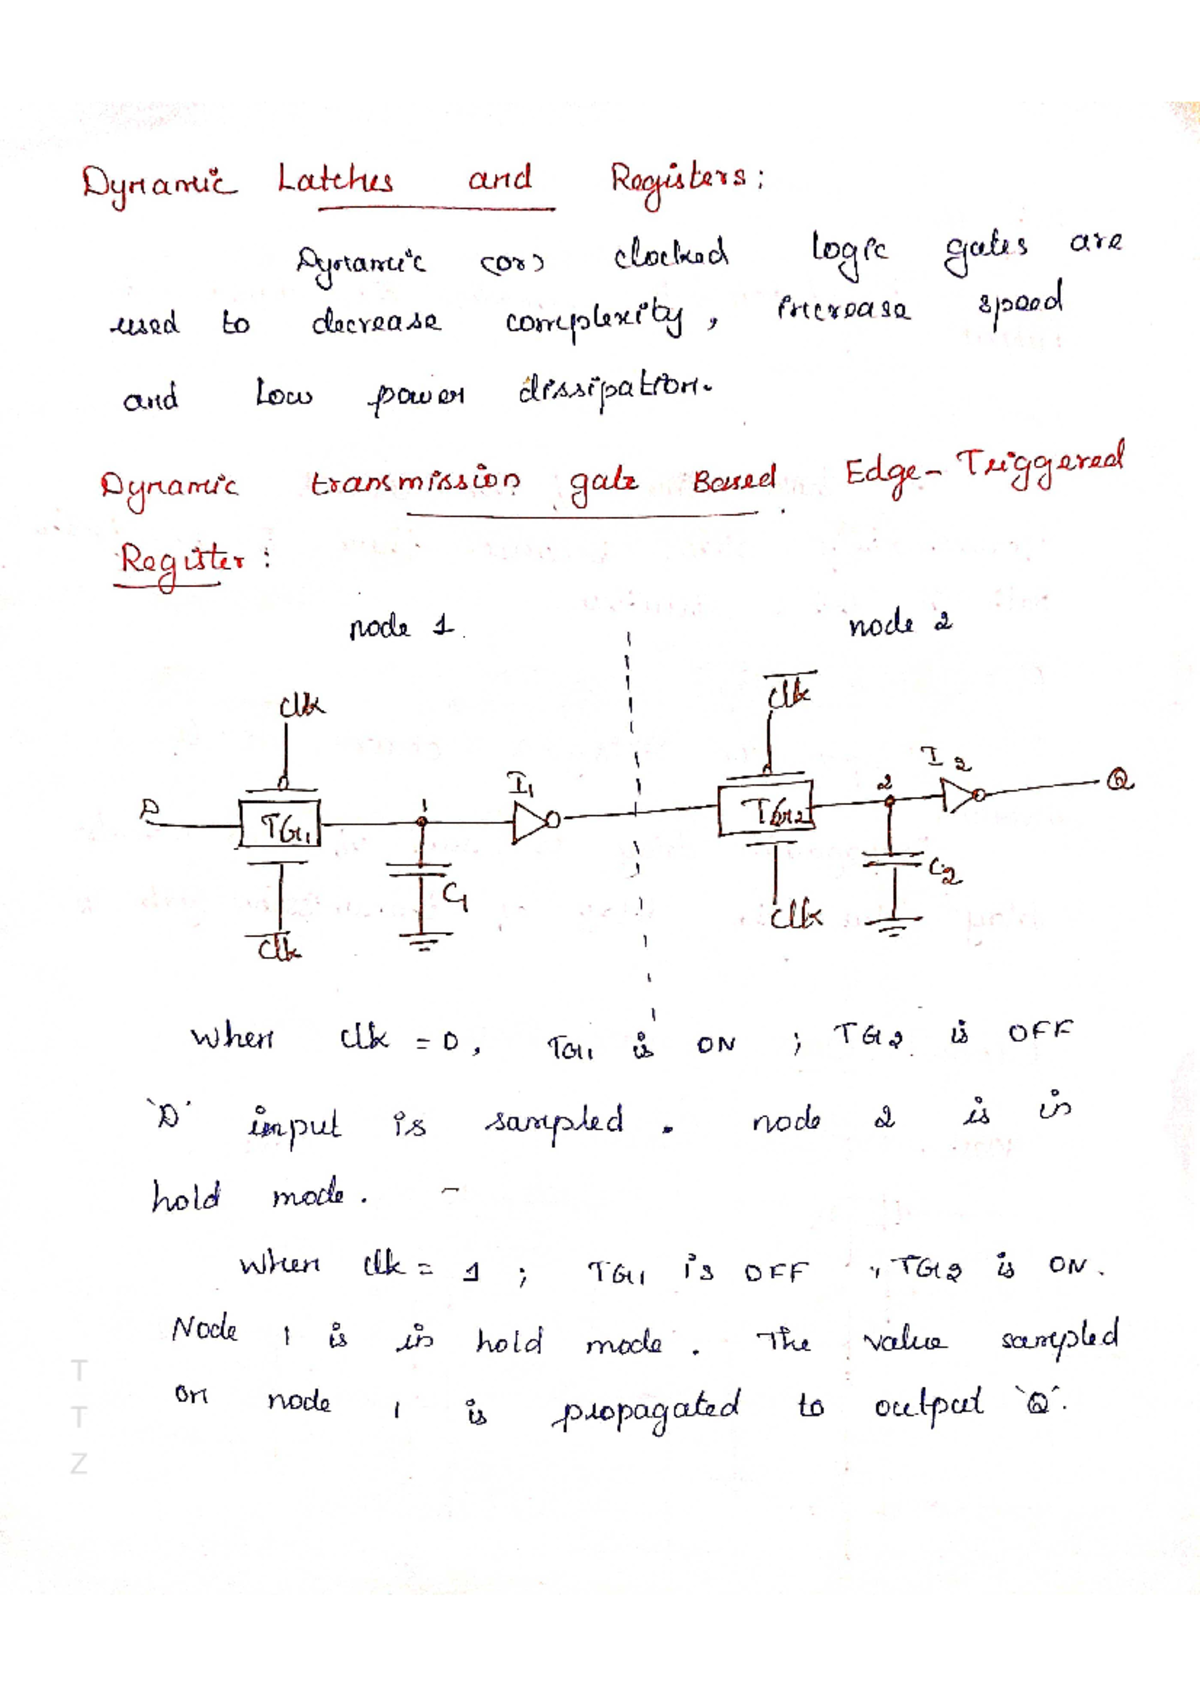 Dynamic Latches and Registers:
Dynamic (or) clocked logic gates are
used to decrease complexity, increase speed
and low power dissipation.
Dynamic transmission gate Based Edge-Triggered
Register:
node 1. node 2
clk c̅l̅k̅
D TG1 1 I1 TG2 2 I2 Q
C1 C2
c̅l̅k̅ clk
When clk = 0, TG1 is ON ; TG2 is OFF
'D' input is sampled. node 2 is in
hold mode. -
When clk = 1 ; TG1 is OFF ., TG2 is ON.
Node 1 is in hold mode. The value sampled
on node 1 is propagated to output 'Q'.
T
T
Z